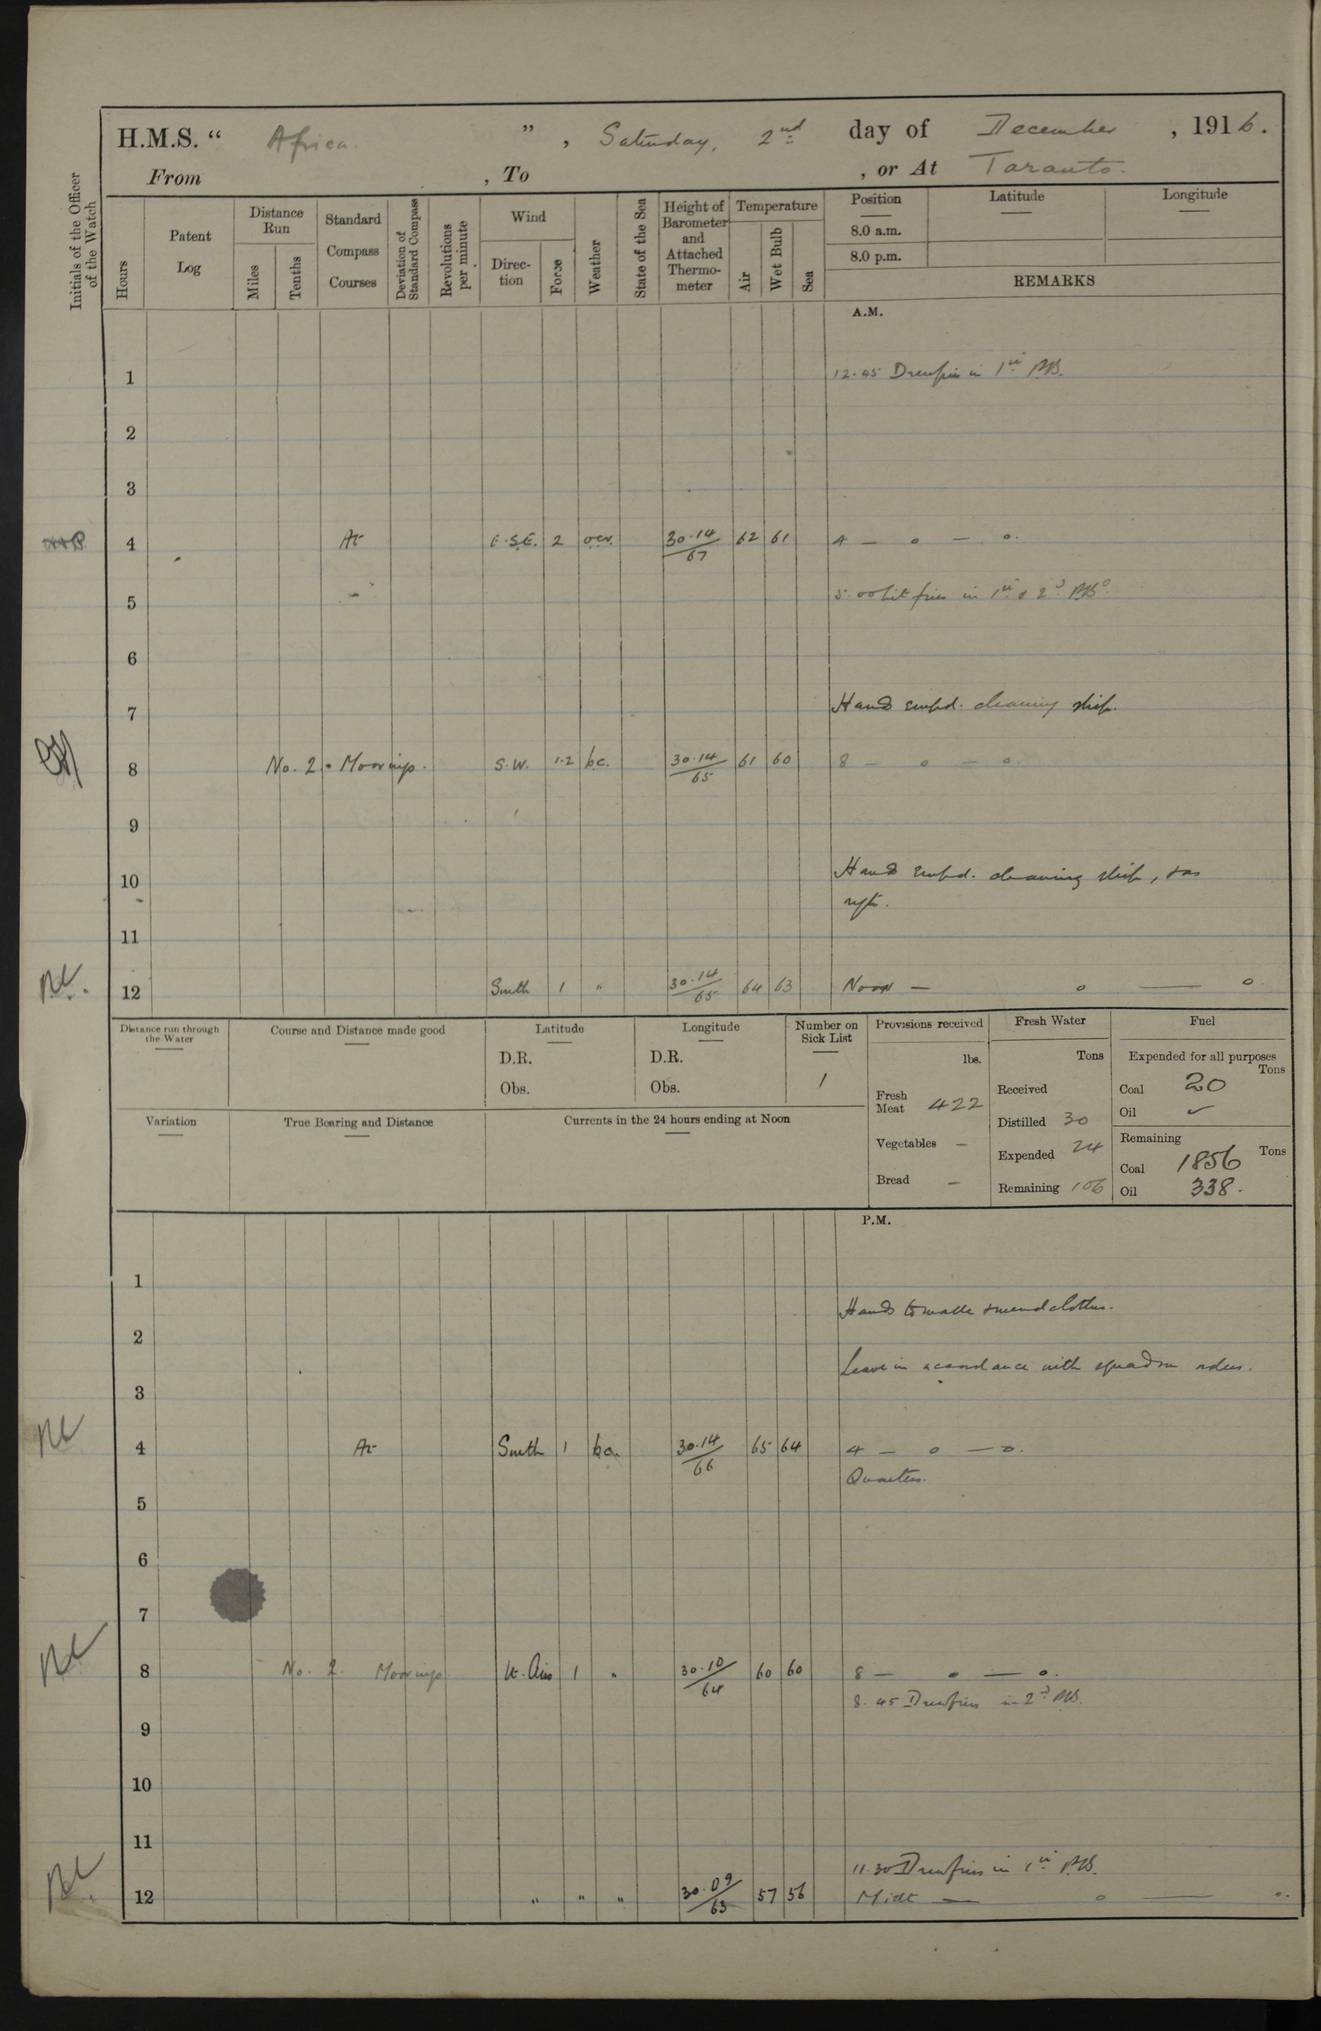 H.M.S. “ Africa. ”, Saturday, 2nd day of December, 1916.
From , To , or At Taranto.
Initials of the Officer of the Watch
Hours
Patent Log
Distance Run
Miles
Tenths
Standard Compass Courses
Deviation of Standard Compass
Revolutions per minute
Wind
Direction
Force
Weather
State of the Sea
Height of Barometer and Attached Thermometer
Temperature
Air
Wet Bulb
Sea
Position
8.0 a.m.
8.0 p.m.
Latitude
Longitude
REMARKS
A.M.
1 12.45 Drew fires in 1st P.B.
2
3
4 At E.S.E. 2 ocr. 30.14/67 62 61 4 — o — o.
5 5.00 Lit fires in 1st & 2d P.Bs.
6
7 Hands empd. cleaning ship.
8 No. 2. Moorings. S.W. 1.2 bc. 30.14/65 61 60 8 — o — o.
9
10 Hands empd. cleaning ship, & as
reqte.
11
12 South 1 " 30.14/65 64 63 Noon — o — o
Distance run through the Water
Course and Distance made good
Latitude
D.R.
Obs.
Longitude
D.R.
Obs.
Number on Sick List
1
Provisions received
lbs.
Fresh Meat 422
Vegetables –
Bread –
Fresh Water
Tons
Received
Distilled 30
Expended 24
Remaining 106
Fuel
Expended for all purposes
Tons
Coal 20
Oil ✓
Remaining
Tons
Coal 1856
Oil 338.
Variation
True Bearing and Distance
Currents in the 24 hours ending at Noon
P.M.
1
Hands to make & mend clothes.
2
Leave in accordance with squadron orders.
3
4 At South 1 bc. 30.14/66 65 64 4 — o — o.
Quarters.
5
6
7
8 No. 2 Moorings. Lt. Airs 1 " 30.10/64 60 60 8 — o — o.
8.45 Drew fires in 2d P.B.
9
10
11
11.30 Drew fires in 1st P.B.
12 " " " 30.09/63 57 56 Midt — o — o.